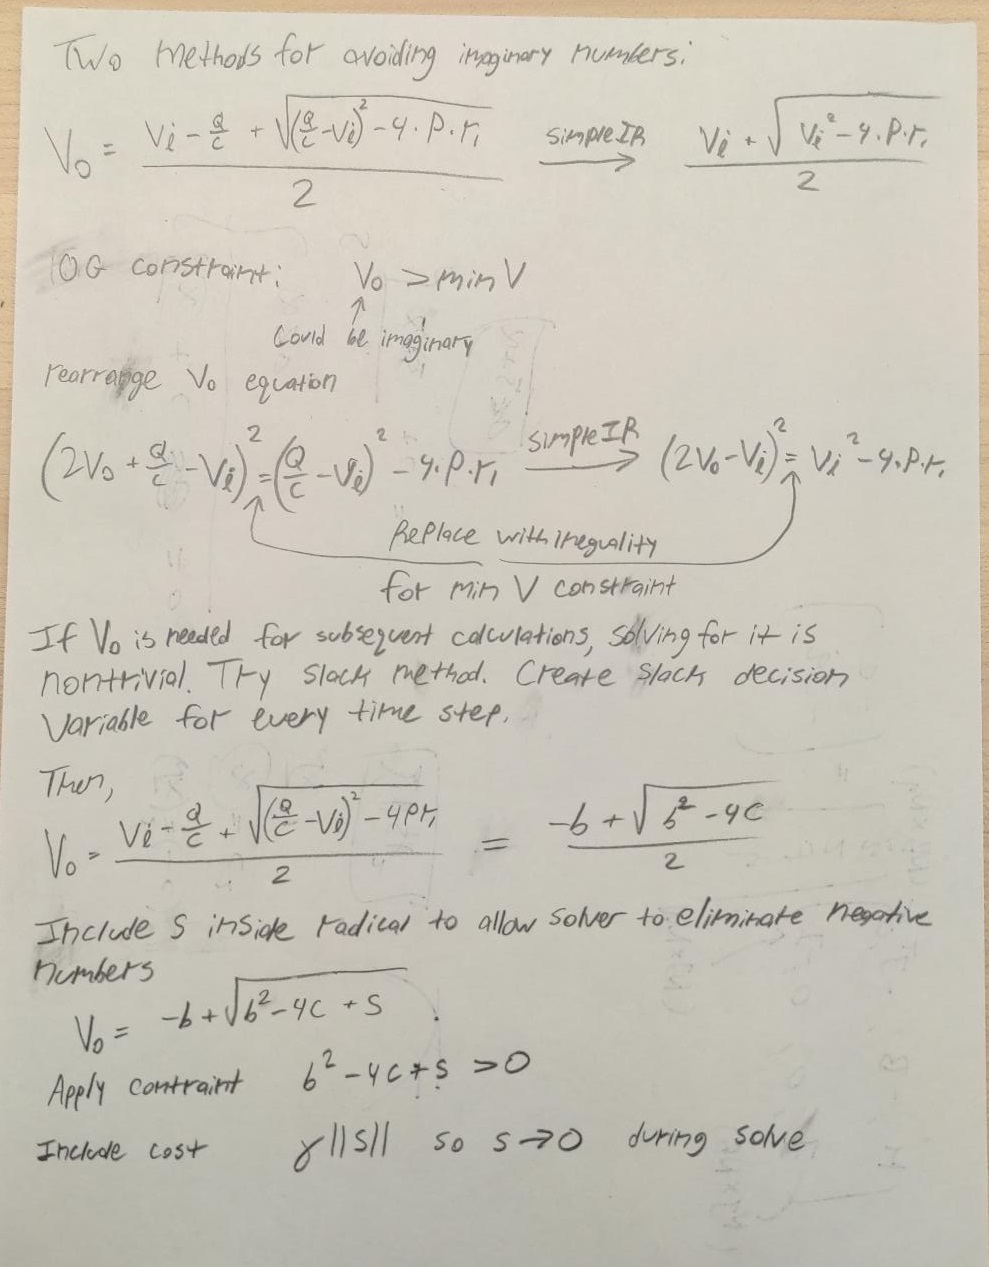 Two methods for avoiding imaginary numbers:
V₀ = (Vᵢ - Q/C + √((Q/C - Vᵢ)² - 4·P·r₁)) / 2 simple IR → (Vᵢ + √(Vᵢ² - 4·P·r₁)) / 2
OG constraint: V₀ > min V
↑
Could be imaginary
rearrange V₀ equation
(2V₀ + Q/C - Vᵢ)² = (Q/C - Vᵢ)² - 4·P·r₁ simple IR → (2V₀ - Vᵢ)² = Vᵢ² - 4·P·r₁
Replace with inequality
for min V constraint
If V₀ is needed for subsequent calculations, solving for it is
nontrivial. Try slack method. Create slack decision
variable for every time step.
Then,
V₀ = (Vᵢ - Q/C + √((Q/C - Vᵢ)² - 4Pr₁)) / 2 = (-b + √(b² - 4C)) / 2
Include S inside radical to allow solver to eliminate negative
numbers
V₀ = -b + √(b² - 4C + S) .
Apply contraint b² - 4C + S > 0
Include cost γ||S|| so S → 0 during solve